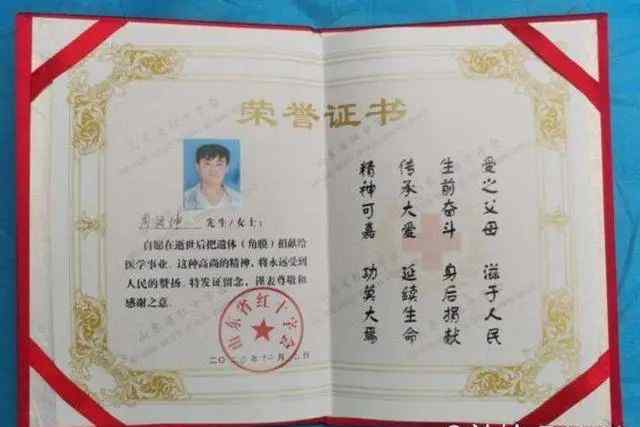 荣誉证书
先生/女士：
自愿在逝世后把遗体（角膜）捐献给
医学事业。这种高尚的精神，将永远受到
人民的赞扬。特发证留念，谨表尊敬和
感谢之意。
山东省红十字会
爱之父母 滋于人民
生前奋斗 身后捐献
传承大爱 延续生命
精神可嘉 功莫大焉